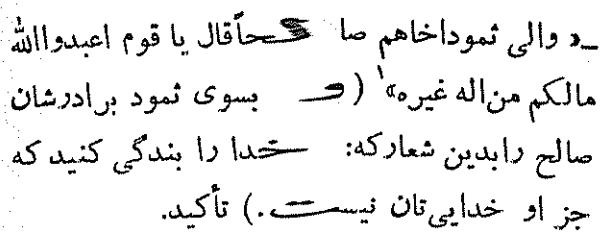 _« والی ثموداخاهم صا لحاًقال یا قوم اعبدوااللّه
مالکم من‌اله غیره»۱ (و بسوی ثمود برادرشان
صالح رابدین شعارکه: خدا را بندگی کنید که
جز او خدایی‌تان نیست.) تأکید.